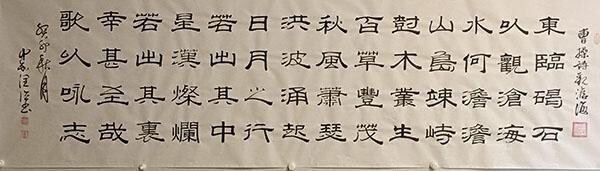 曹操詩觀滄海
東臨碣石
以觀滄海
水何澹澹
山島竦峙
尌木叢生
百草豐茂
秋風蕭瑟
洪波涌起
日月之行
若出其中
星漢燦爛
若出其裏
幸甚至哉
歌以咏志
癸卯秋月